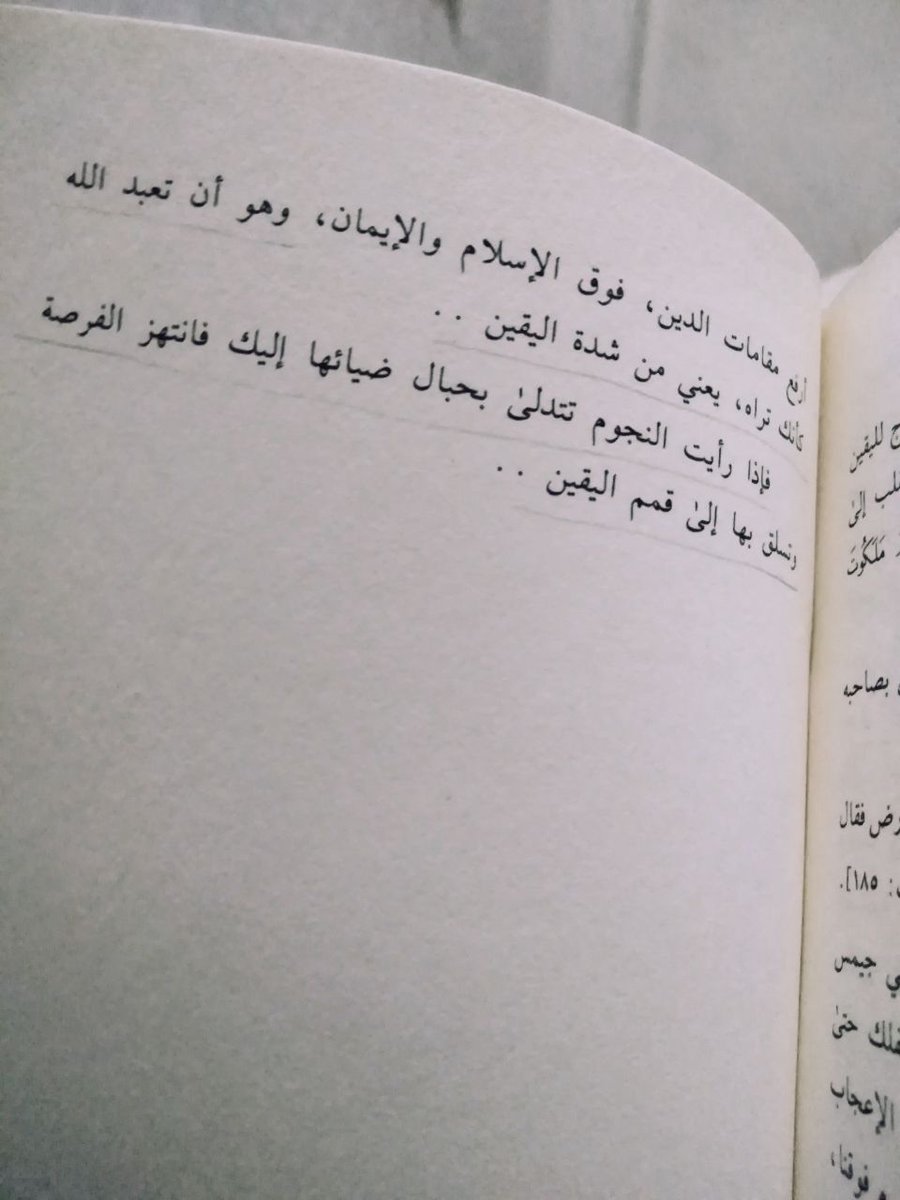 أرفع مقامات الدين، فوق الإسلام والإيمان، وهو أن تعبد الله
كأنك تراه، يعني من شدة اليقين ..
فإذا رأيت النجوم تتدلىٰ بحبال ضيائها إليك فانتهز الفرصة
وتسلق بها إلىٰ قمم اليقين ..
لليقين
إلىٰ
مَلَكُوتَ
بصاحبه
فقال
: ١٨٥].
جيمس
حتىٰ
الإعجاب
فوقنا،